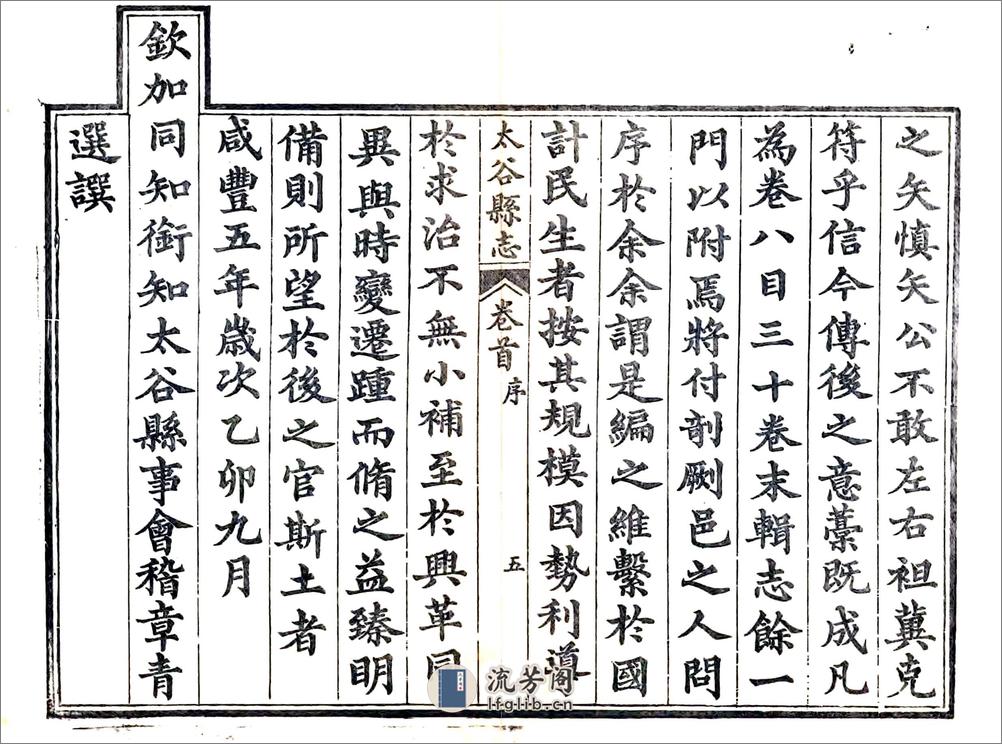 之矢慎矢公不敢左右袒冀克
符乎信今傳後之意藁既成凡
為卷八目三十卷末輯志餘一
門以附焉將付剞劂邑之人問
序於余余謂是編之維繫於國
計民生者按其規模因勢利導
太谷縣志 卷首 序 五
於求治不無小補至於興革同
異與時變遷踵而脩之益臻明
備則所望於後之官斯土者
咸豐五年歲次乙卯九月
欽加同知銜知太谷縣事會稽章青
選譔
流芳阁
lfglib.cn